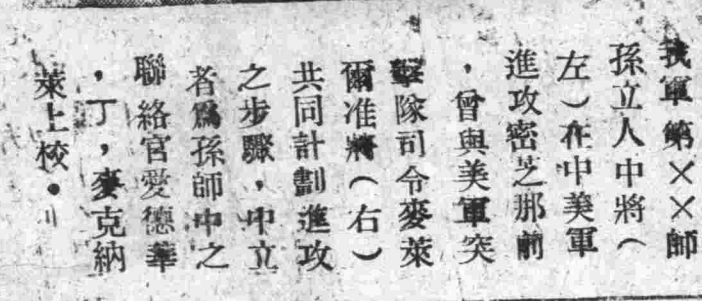 我軍第××師
孫立人中將（
左）在中美軍
進攻密芝那前
，曾與美軍突
擊隊司令麥萊
爾准將（右）
共同計劃進攻
之步驟，中立
者爲孫師中之
聯絡官愛德華
，丁，麥克納
萊上校。